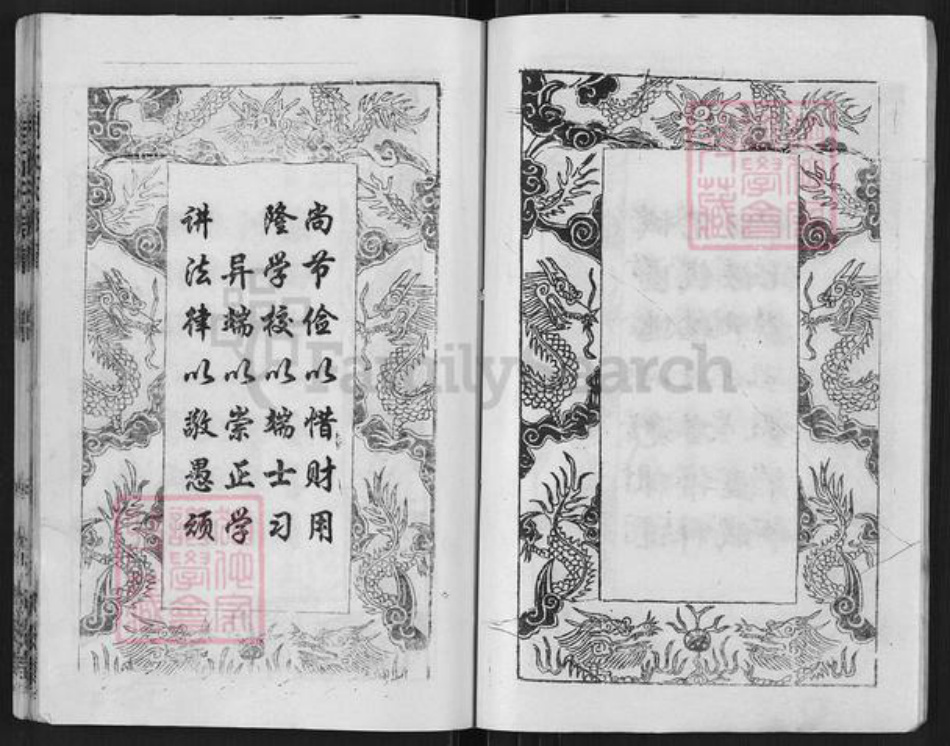 尚节俭以惜财用
隆学校以端士习
异端以崇正学
讲法律以敬愚顽
FamilySearch